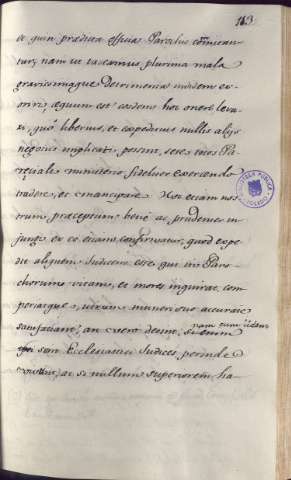 113
et quin prædicta officia Parochis committantur,
nam ut taceamus plurima mala
gravissimaque Detrimenta inidem exoriri,
æquum est eosdem hoc onere levari,
quò liberius, et expeditius nullis alijs
negotijs implicati possint, sese totos Parochiales
ministerio fideliter exercendo
tradere, et emancipare. Hoc etiam nostrum
præceptum benè ac prudenter injungi
ex eo etiam confirmatur, quod expedit
aliquem Judicem esse, qui in Parochorum
vitam, et mores inquirat, comperiatque,
utrum muneri suo accurate
satisfaciant, an vero desint,
nam cum vitam
sint Ecclesiastici Judices, perinde
ac si nullum superiorem, ha
BIBLIOTECA PUBLICA
TOLEDO